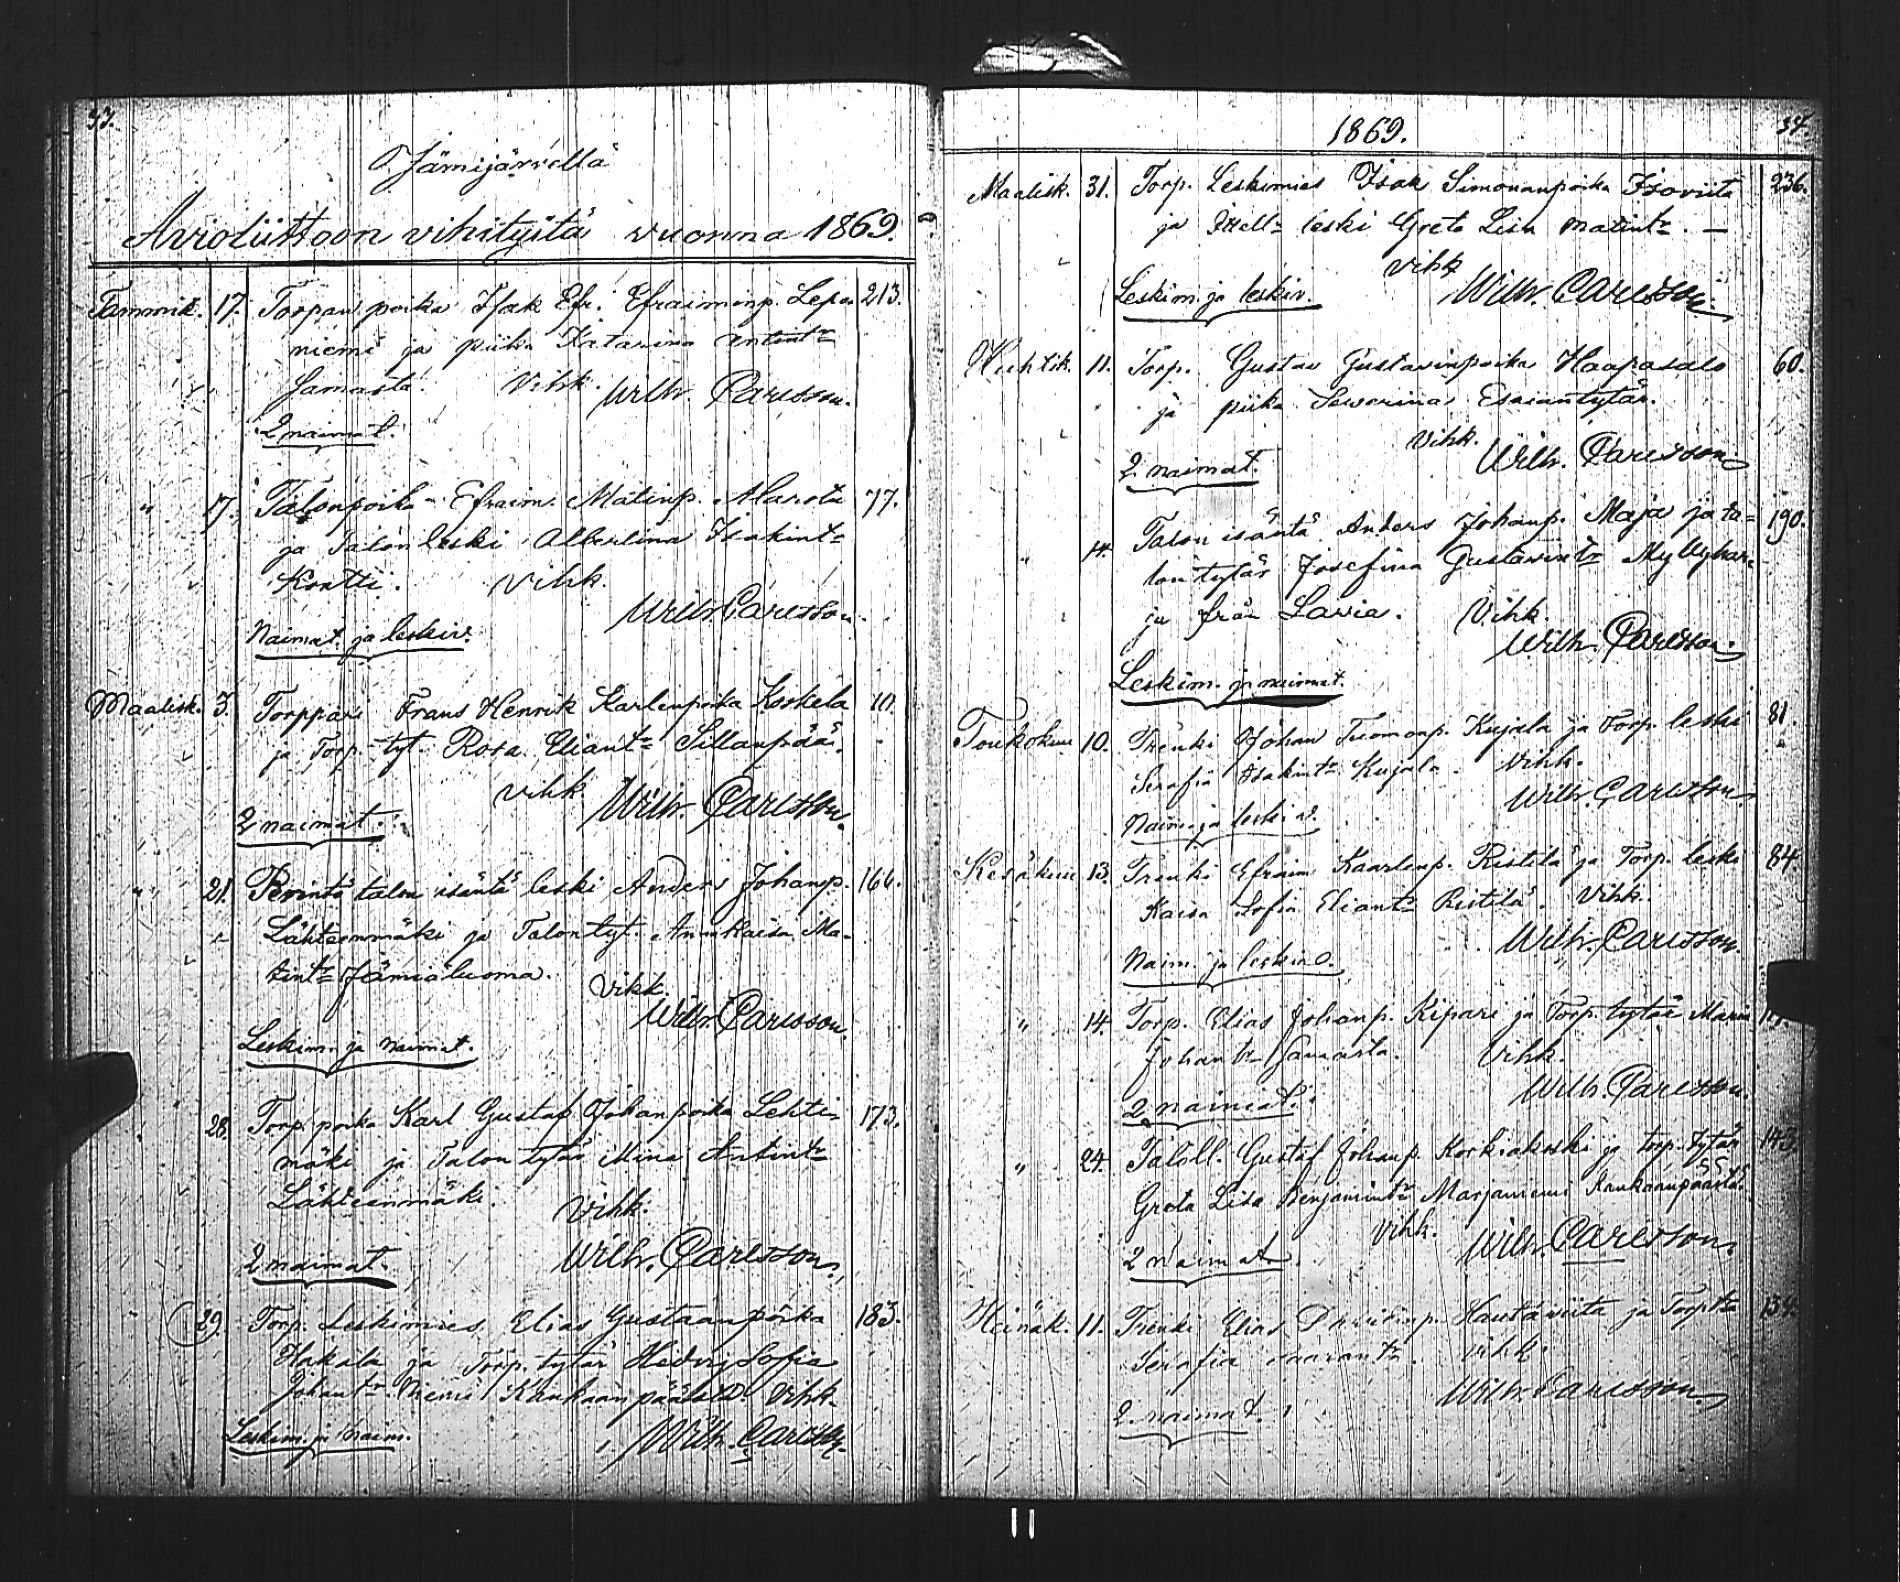 33.
Jämijärvellä
Avioliittoon vihityitä vuonna 1869.
Tammik. 17. Torpan poika Isak Efr. Efraiminp. Lepa 213.
niemi ja piika Katarina Antint:r
Samasta. Vihk. Wilh. Carlsson.
2 naimat.
" 17. Talonpoika Efraim Matinp. Alarota 77.
ja Talon leski Albertina Isakint:r
Kontti. Vihk.
Wilh. Carlsson.
Naimat. ja leskiv.
Maalisk. 3. Torppari Frans Henrik Karlenpoika Koskela 10.
ja Torp. tyt. Rosa Eliant:r Sillanpää.
Vihk. Wilh. Carlsson.
2 naimat.
" 21. Perintö talon isäntä leski Anders Johanp. 166.
Lähteenmäki ja Talon tyt. Anna Kaisa Ma-
tint:r Jämiäluoma. Vihk.
Wilh. Carlsson.
Leskim. ja naimat.
28. Torp. poika Karl Gustaf Johanpoika Lehti- 173.
mäki ja Talon tytär Mina Antint:r
Lähteenmäki. Vihk.
2 naimat. Wilh. Carlsson.
" 29. Torp. Leskimies Elias Gustaanpoika 183.
Hakala ja Torp. tytär Hedvig Sofia
Johant:r Niemi Kankaanpäästä. Vihk.
Leskim. ja naim. Wilh. Carlsson.
1869. 34.
Maalisk. 31. Torp. Leskimies Isak Simonanpoika Isoviita 236.
ja leski Greta Lisa Matint:r. —
Vihk.
Leskim. ja leskiv. Wilh. Carlsson.
Huhtik. 11. Torp. Gustav Gustavinpoika Haapasalo 60.
ja piika Severina Esaiantytär.
Vihk.
2 naimat. Wilh. Carlsson.
" 14. Talon isäntä Anders Johanp. Maja ja ta- 190.
lon tytär Josefina Gustavint:r Myllyhar-
ju från Lavia. Vihk.
Wilh. Carlsson.
Leskim. ja naimat.
Toukokuu 10. Trenki Johan Tuomanp. Kujala ja Torp. leski 81.
Serafia Isakint:r Kujala. Vihk.
Wilh. Carlsson.
Naim. ja leskiv.
Kesäkuu 13. Trenki Efraim Kaarlenp. Ristilä ja Torp. leski 84.
Kaisa Sofia Eliant:r Ristilä. Vihk.
Wilh. Carlsson.
Naim. ja leskiv.
" 14. Torp. Elias Johanp. Kipari ja Torp. tytär Maria
Johant:r Samasta. Vihk.
Wilh. Carlsson.
2 naimat.
" 24. Taloll. Gustaf Johanp. Korkiakoski ja torp. tytär 143.
Greta Lisa Benjamint:r Marjaniemi Kankaanpäästä.
Vihk.
2 naimat. Wilh. Carlsson.
Heinäk. 11. Trenki Elias Davidinp. Hautaviita ja Torp. t:r 134.
Serafia Vihk.
Wilh. Carlsson.
2. naimat.
11